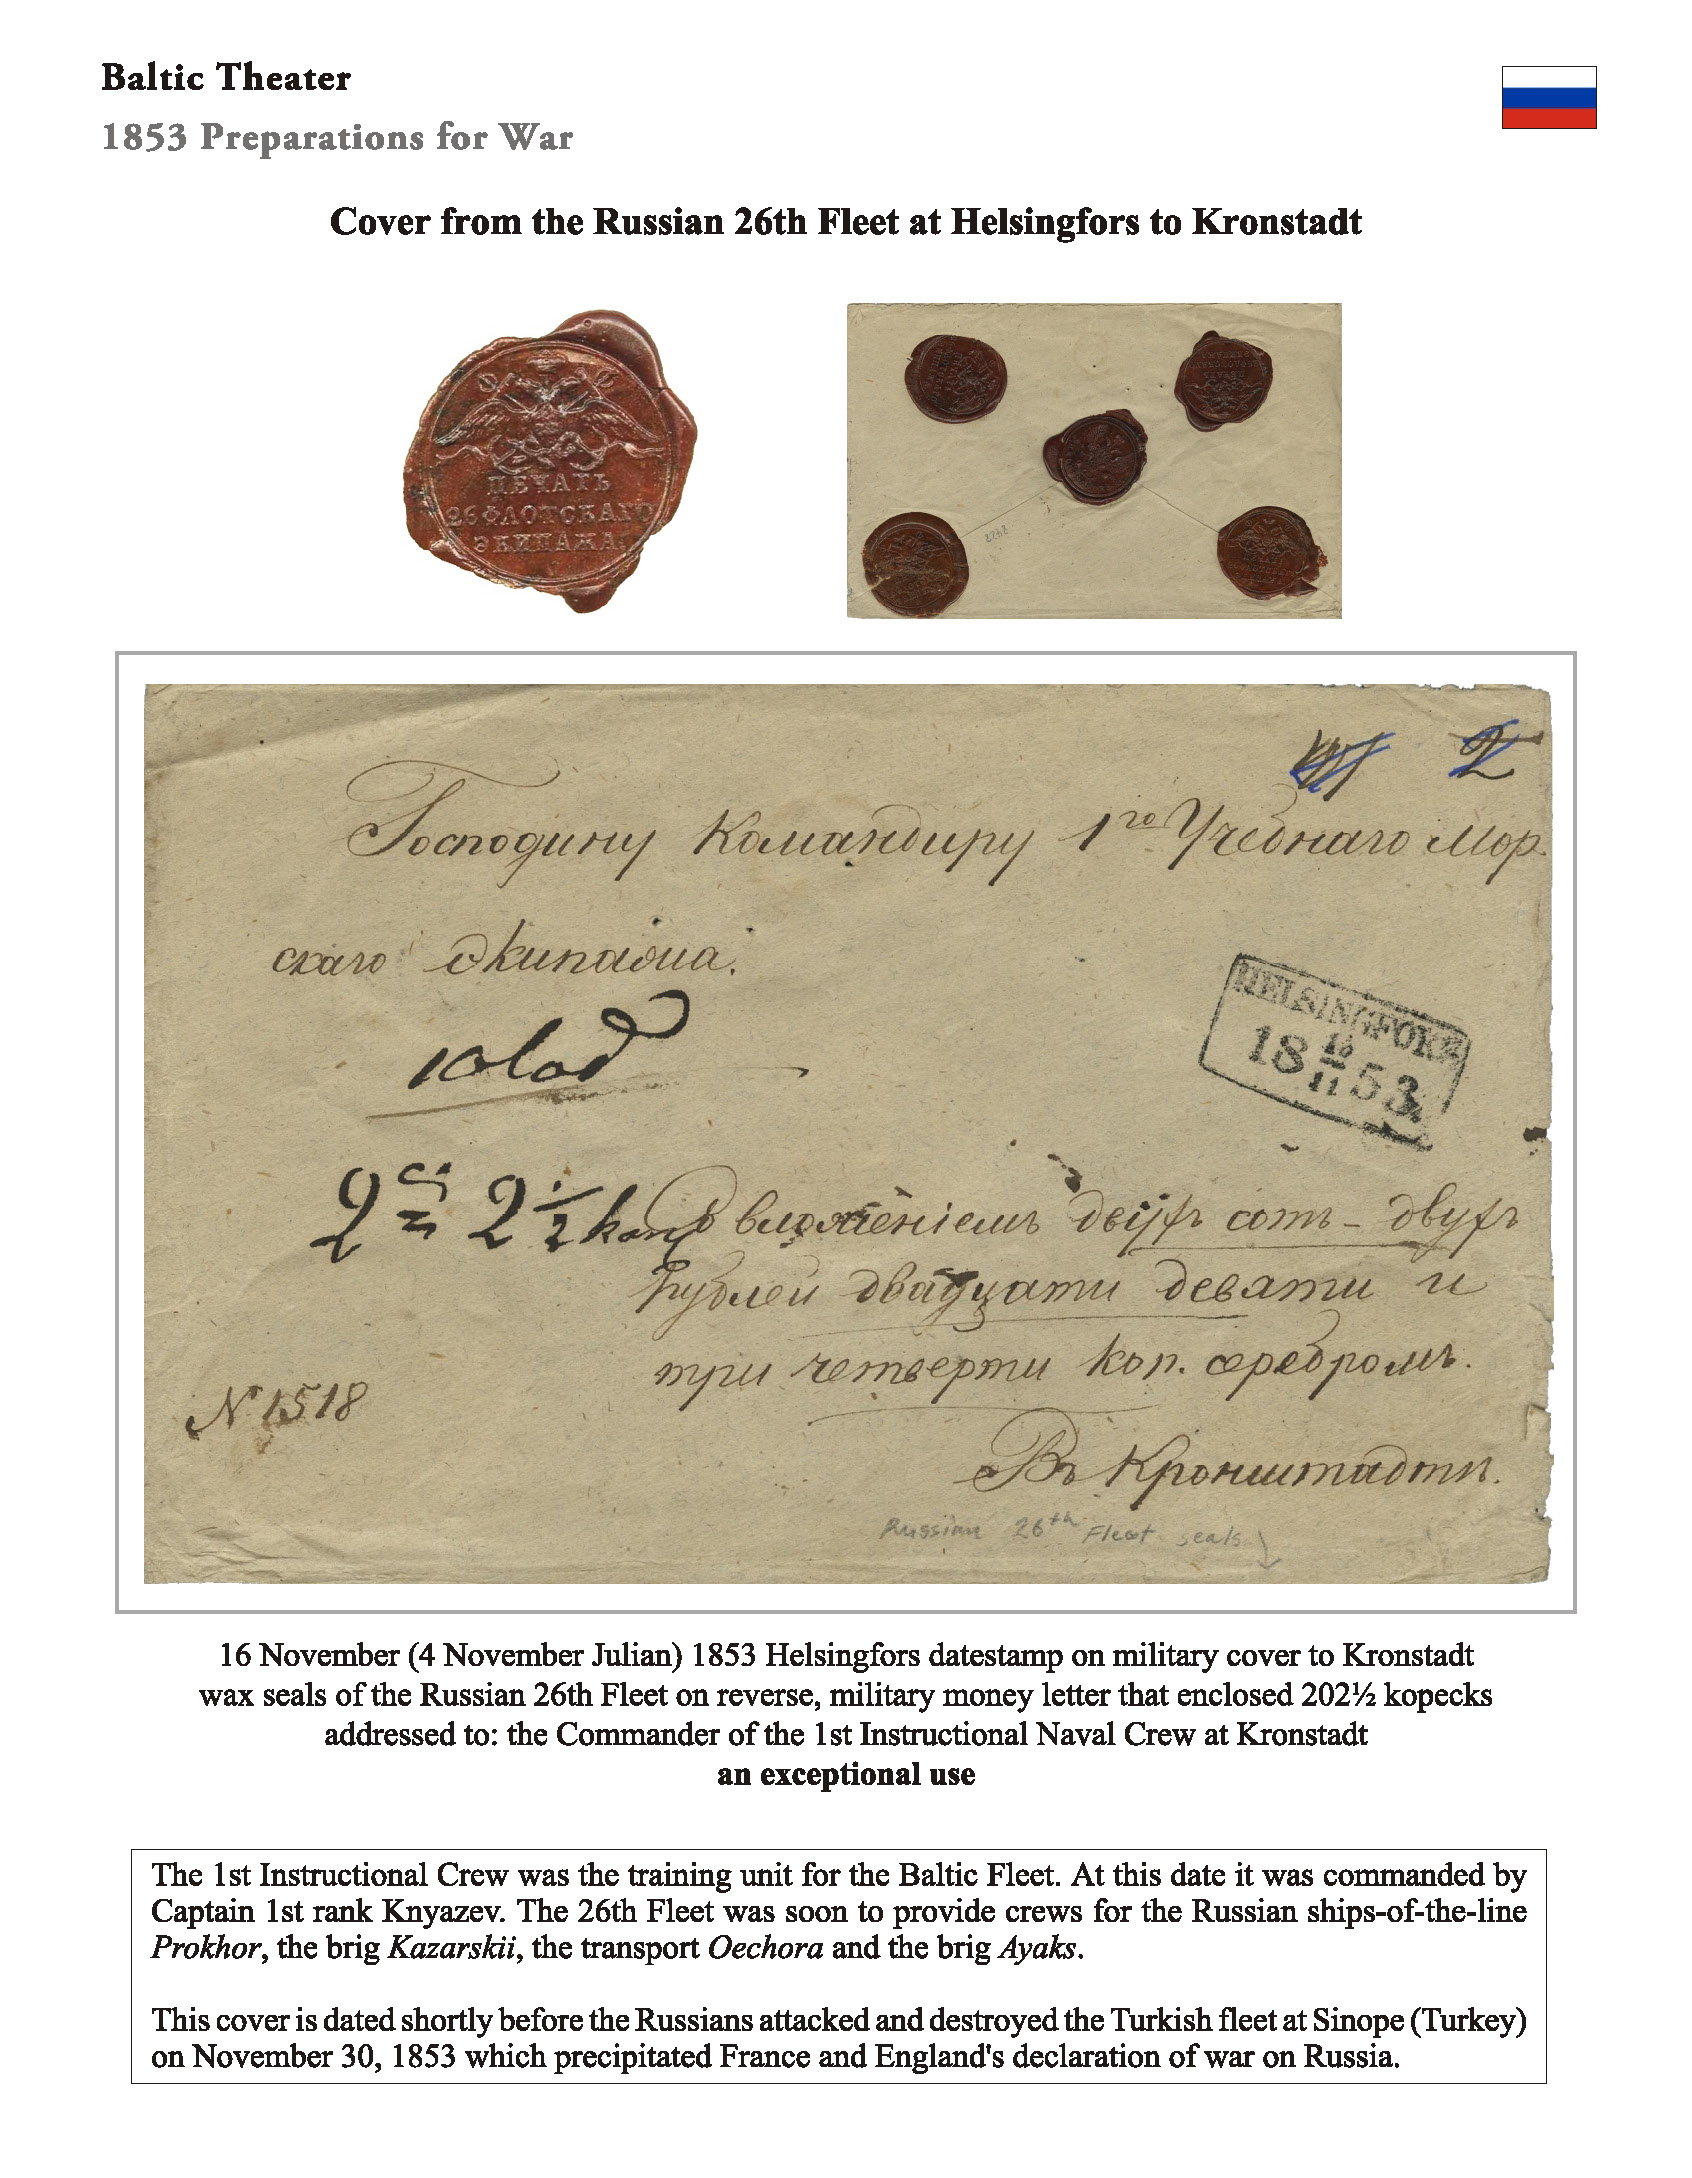 Baltic Theater
1853 Preparations for War
Cover from the Russian 26th Fleet at Helsingfors to Kronstadt
ПЕЧАТЬ
26 ФЛОТСКАГО
ЭКИПАЖА
Господину Командиру 1го Учебнаго Мор-
скаго Экипажа.
HELSINGFORS
18 16/11 53
2 2½ коп
Со вложеніемъ двухъ сотъ - двухъ
рублей двадцати девяти и
три четверти коп. серебромъ.
N 1518
Въ Кронштадтъ.
Russian 26th Fleet seals
16 November (4 November Julian) 1853 Helsingfors datestamp on military cover to Kronstadt
wax seals of the Russian 26th Fleet on reverse, military money letter that enclosed 202½ kopecks
addressed to: the Commander of the 1st Instructional Naval Crew at Kronstadt
an exceptional use
The 1st Instructional Crew was the training unit for the Baltic Fleet. At this date it was commanded by
Captain 1st rank Knyazev. The 26th Fleet was soon to provide crews for the Russian ships-of-the-line
Prokhor, the brig Kazarskii, the transport Oechora and the brig Ayaks.
This cover is dated shortly before the Russians attacked and destroyed the Turkish fleet at Sinope (Turkey)
on November 30, 1853 which precipitated France and England's declaration of war on Russia.